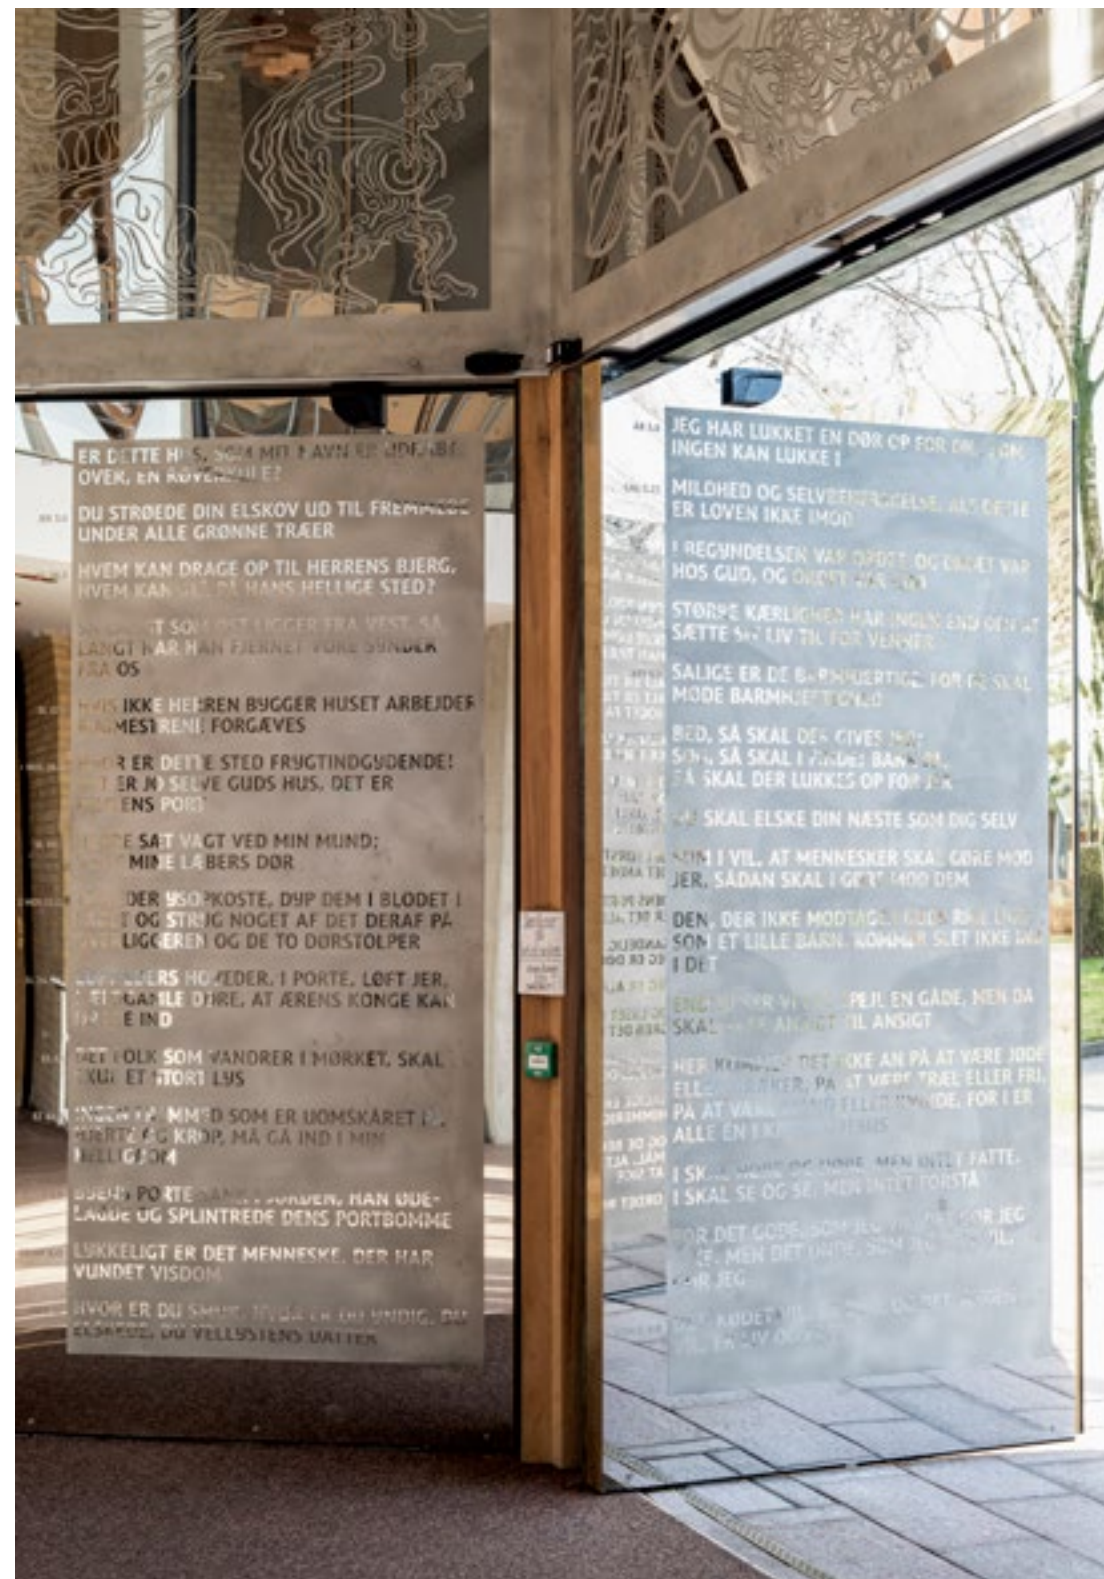 ER DETTE HUS, SOM MIT NAVN ER UDRÅBT
OVER, EN RØVERKULE?
DU STRØEDE DIN ELSKOV UD TIL FREMMEDE
UNDER ALLE GRØNNE TRÆER
HVEM KAN DRAGE OP TIL HERRENS BJERG,
HVEM KAN STÅ PÅ HANS HELLIGE STED?
SOM ØST LIGGER FRA VEST, SÅ
LANGT HAR HAN FJERNET VORE SYNDER
FRA OS
HVIS IKKE HERREN BYGGER HUSET ARBEJDER
BYGMESTRENE FORGÆVES
HVOR ER DETTE STED FRYGTINDGYDENDE!
DET ER JO SELVE GUDS HUS, DET ER
HIMLENS PORT
SÆT VAGT VED MIN MUND;
MINE LÆBERS DØR
YSOPKOSTE, DYP DEM I BLODET I
OG STRYG NOGET AF DET DERAF PÅ
OVERLIGGEREN OG DE TO DØRSTOLPER
LØFT JERS HOVEDER, I PORTE, LØFT JER,
ÆLDGAMLE DØRE, AT ÆRENS KONGE KAN
DRAGE IND
DET FOLK SOM VANDRER I MØRKET, SKAL
SKUE ET STORT LYS
INGEN FREMMED SOM ER UOMSKÅRET PÅ
HJERTE OG KROP, MÅ GÅ IND I MIN
HELLIGDOM
BYENS PORTE SANK I JORDEN, HAN ØDE-
LAGDE OG SPLINTREDE DENS PORTBOMME
LYKKELIGT ER DET MENNESKE, DER HAR
VUNDET VISDOM
HVOR ER DU SMUK, HVOR ER DU YNDIG, DU
ELSKEDE, DU VELLYSTENS DATTER
JEG HAR LUKKET EN DØR OP FOR DIG, SOM
INGEN KAN LUKKE I
MILDHED OG SELVBEHERSKELSE. ALT DETTE
ER LOVEN IKKE IMOD
I BEGYNDELSEN VAR ORDET, OG ORDET VAR
HOS GUD, OG ORDET VAR GUD
STØRRE KÆRLIGHED HAR INGEN END DEN AT
SÆTTE SIT LIV TIL FOR VENNER
SALIGE ER DE BARMHJERTIGE, FOR DE SKAL
MØDE BARMHJERTIGHED
BED, SÅ SKAL DER GIVES JER;
SØG, SÅ SKAL I FINDE; BANK PÅ,
SÅ SKAL DER LUKKES OP FOR JER
DU SKAL ELSKE DIN NÆSTE SOM DIG SELV
SOM I VIL, AT MENNESKER SKAL GØRE MOD
JER, SÅDAN SKAL I GØRE MOD DEM
DEN, DER IKKE MODTAGER GUDS RIGE
SOM ET LILLE BARN, KOMMER SLET IKKE IND
I DET
ENDNU SER VI I ET SPEJL, EN GÅDE, MEN DA
SKAL VI SE ANSIGT TIL ANSIGT
HER KOMMER DET IKKE AN PÅ AT VÆRE JØDE
ELLER GRÆKER, PÅ AT VÆRE TRÆL ELLER FRI,
PÅ AT VÆRE MAND ELLER KVINDE, FOR I ER
ALLE ÉN I
I SKAL HØRE OG HØRE, MEN INTET FATTE,
I SKAL SE OG SE, MEN INTET FORSTÅ
FOR DET GODE, SOM JEG VIL, DET GØR JEG
IKKE, MEN DET ONDE, SOM JEG IKKE VIL,
GØR JEG
KØDET VIL
VIL, ER LIV OG